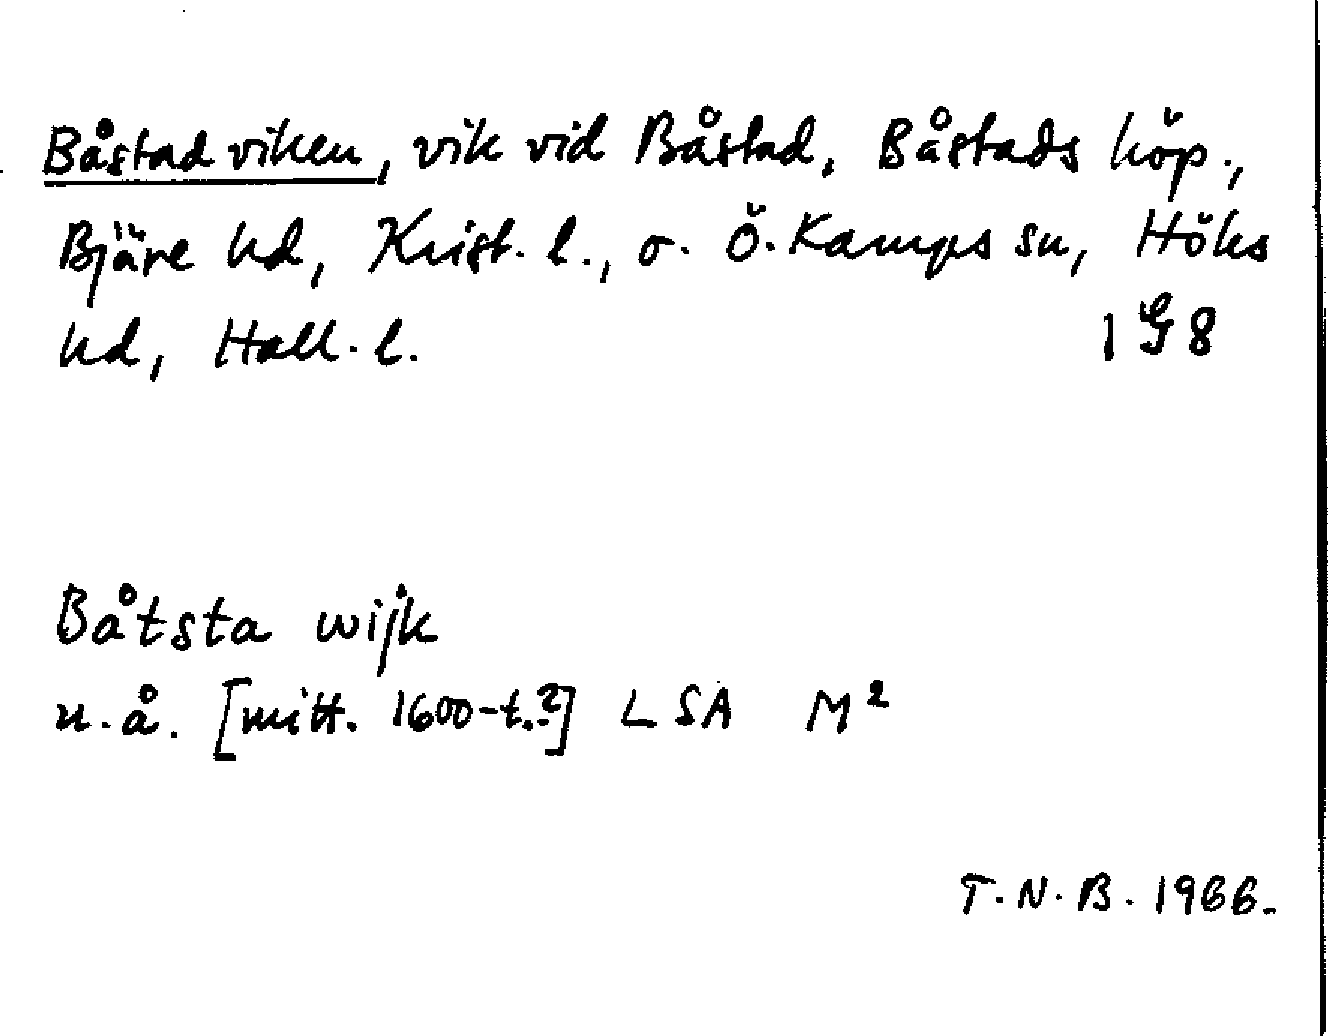 Båstadviken, vik vid Båstad, Båstads köp.,
Bjäre hd, Krist. l., o. Ö. Karups sn, Höks
hd, Hall. l. 1 G 8
Båtsta wijk
u. å. [mitt. 1600-t.?] LSA M²
T. N. B. 1966.